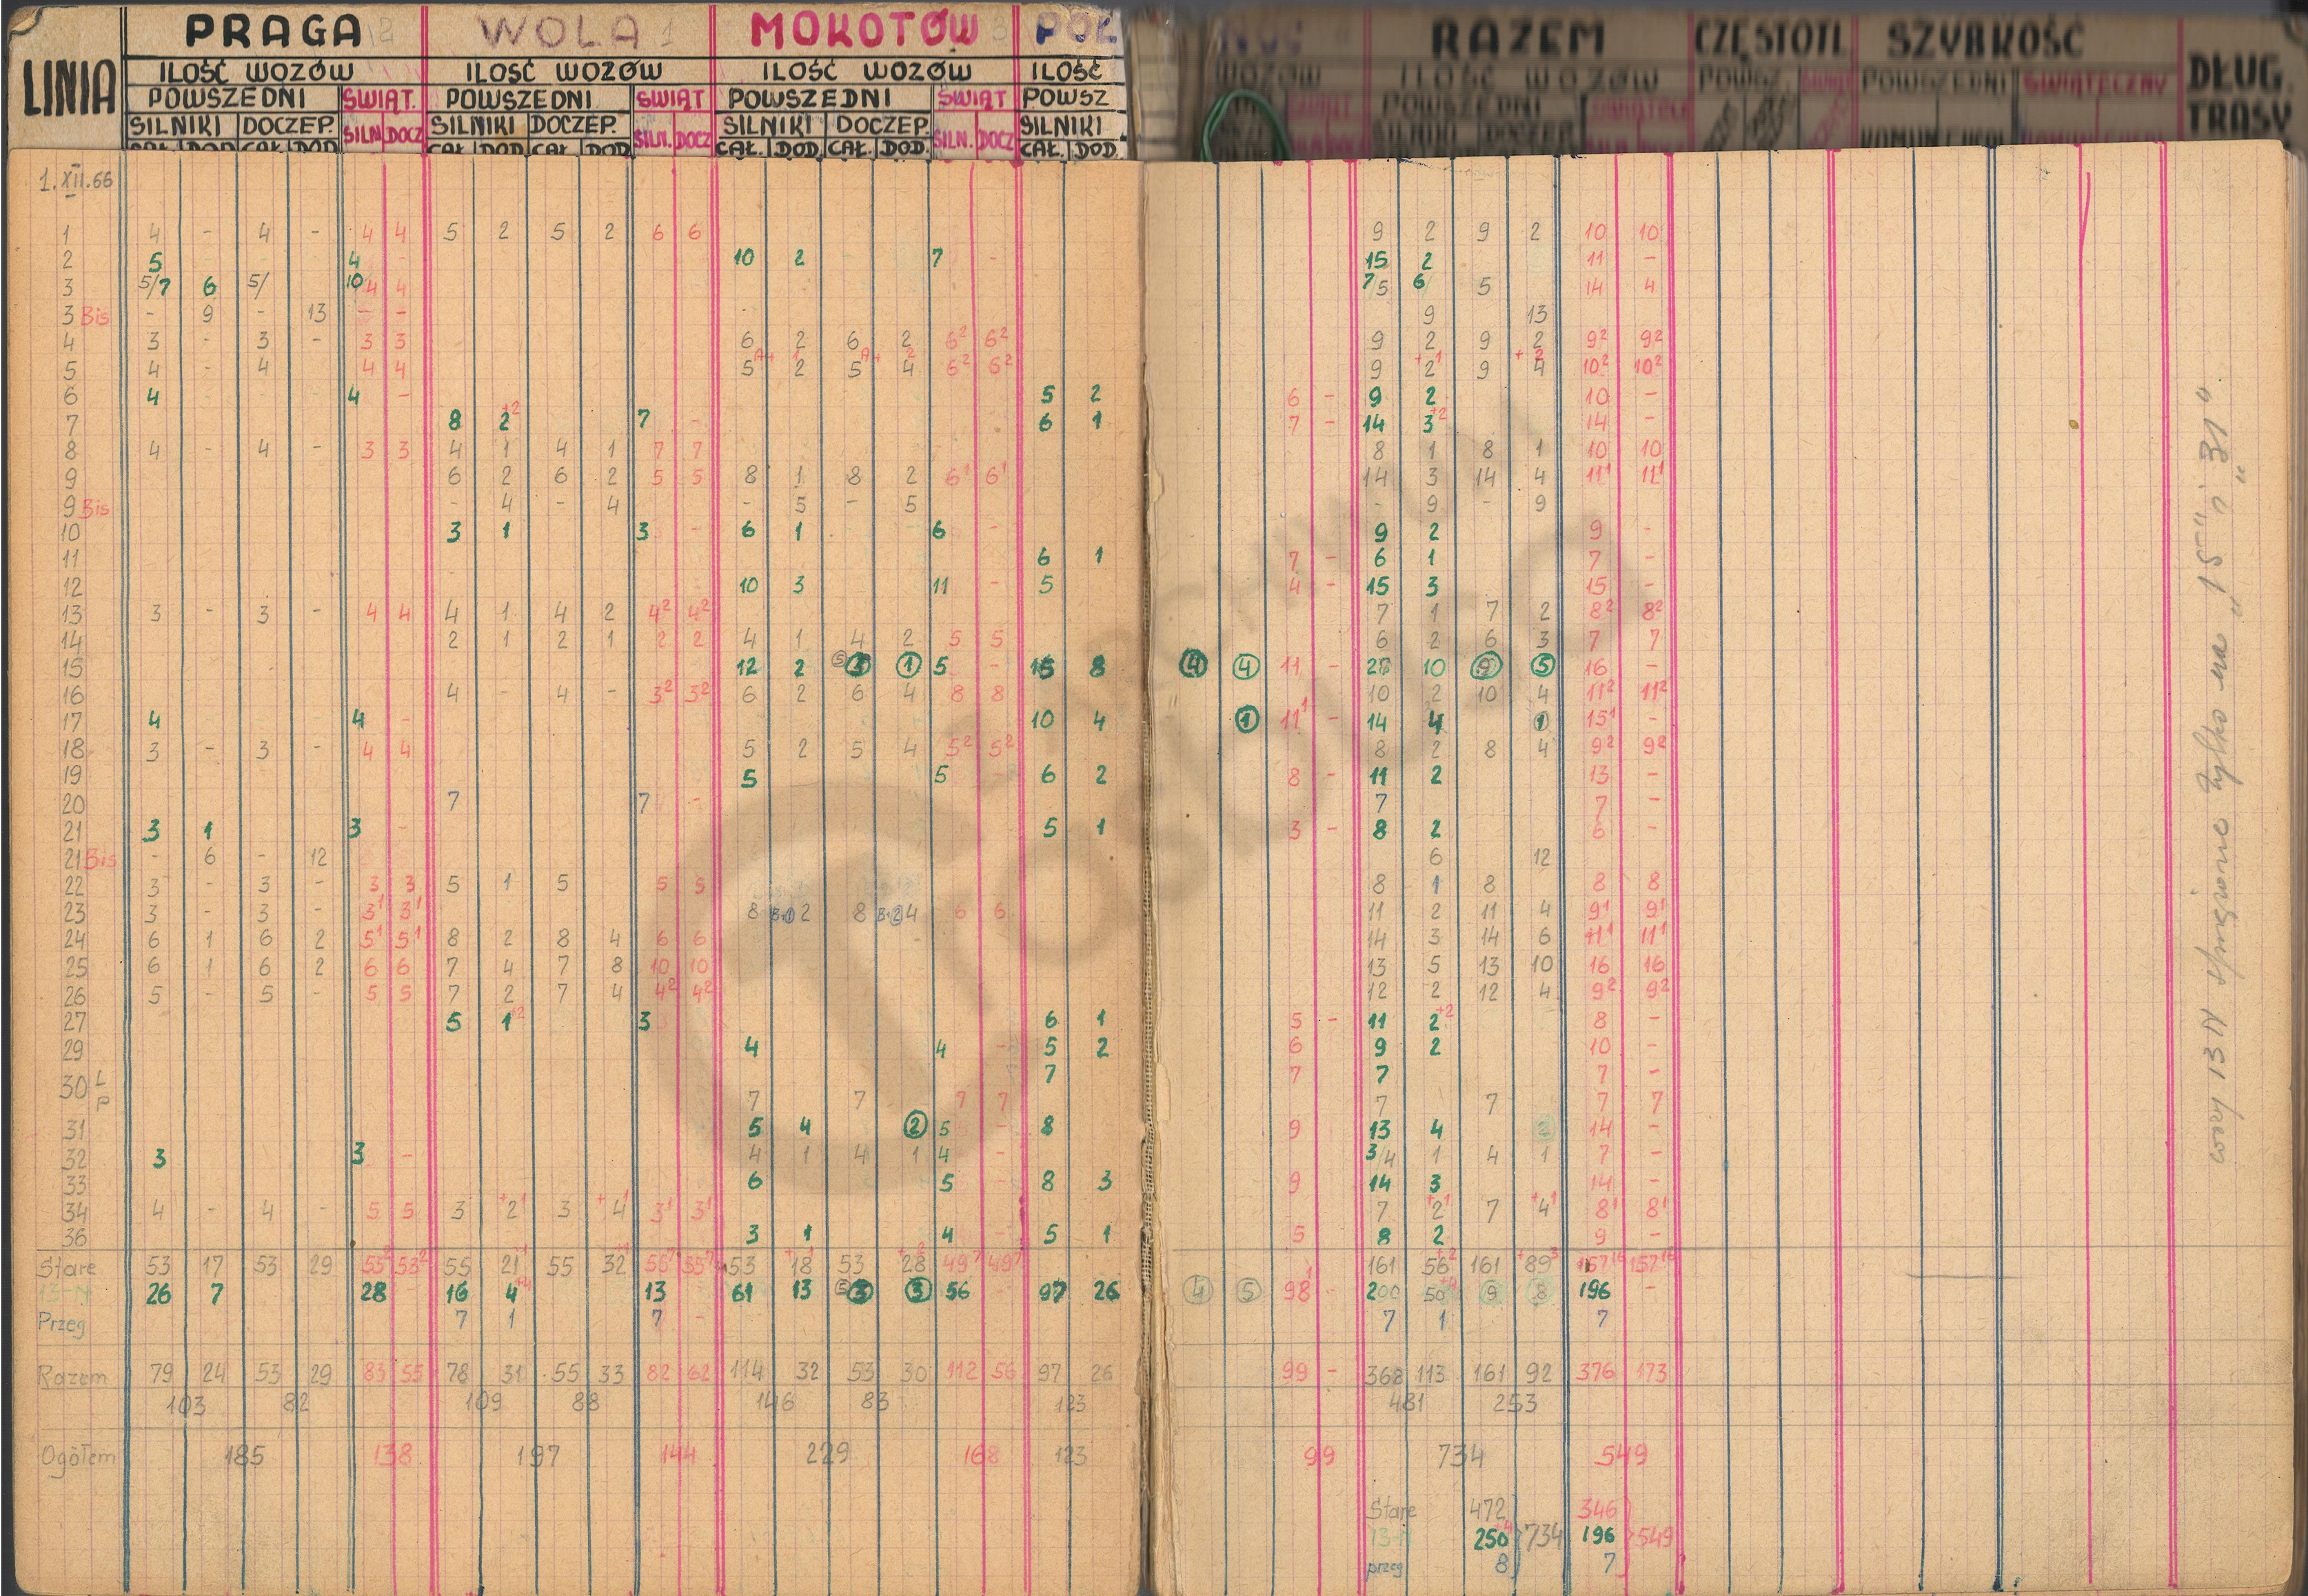 LINIA PRAGA 2 WOLA 1 MOKOTÓW 3 PÓŁ NOC RAZEM CZĘSTOTL SZYBKOŚĆ DŁUG. TRASY
ILOŚĆ WOZÓW ILOŚĆ WOZÓW ILOŚĆ WOZÓW ILOŚĆ WOZÓW ILOŚĆ WOZÓW POWSZ. ŚWIĄT POWSZEDNI ŚWIĄTECZNY
POWSZEDNI ŚWIĄT. POWSZEDNI ŚWIĄT POWSZEDNI ŚWIĄT POWSZ POWSZEDNI
SILNIKI DOCZEP. SILN. DOCZ SILNIKI DOCZEP. SILN. DOCZ SILNIKI DOCZEP. SILN. DOCZ SILNIKI SILNIKI DOCZEP
CAŁ. DOD CAŁ. DOD CAŁ. DOD. CAŁ. DOD CAŁ. DOD. CAŁ. DOD. CAŁ. DOD.
1.XII.66
1 4 - 4 - 4 4 5 2 5 2 6 6 9 2 9 2 10 10
2 5 4 - 10 2 7 - 15 2 11 -
3 5/7 6 5/ 10 4 4 7/5 6/ 5 14 4
3 Bis - 9 - 13 - - - 9 13
4 3 - 3 - 3 3 6 2 6 2 6² 6² 9 2 9 2 9² 9²
5 4 - 4 4 4 5 A+ 2 1 5 A+ 4 2 6² 6² 9 +2¹ 9 +4² 10² 10²
6 4 4 - 5 2 6 - 9 2 10 -
7 8 2+2 7 - 6 1 7 - 14 3+2 14 -
8 4 - 4 - 3 3 4 1 4 1 7 7 8 1 8 1 10 10
9 6 2 6 2 5 5 8 1 8 2 6¹ 6¹ 14 3 14 4 11¹ 11¹
9 Bis - 4 - 4 - 5 - 5 - 9 - 9
10 3 1 3 - 6 1 6 - 9 2 9 -
11 6 1 7 - 6 1 7 -
12 10 3 11 - 5 4 - 15 3 15 -
13 3 - 3 - 4 4 4 1 4 2 4² 4² 7 1 7 2 8² 8²
14 2 1 2 1 2 2 4 1 4 2 5 5 6 2 6 3 7 7
15 12 2 ⑤ ① 5 - 8 ④ ④ 11 - 10 ⑨ ⑤ 16 -
16 4 - 4 - 3² 3² 6 2 6 4 8 8 10 2 10 4 11² 11²
17 4 4 - 10 4 ① 11¹ - 14 4 ① 15¹ -
18 3 - 3 - 4 4 5 2 5 4 5² 5² 8 2 8 4 9² 9²
19 5 5 - 6 2 8 - 11 2 13 -
20 7 7 - 7 7 -
21 3 1 3 - 5 1 3 - 8 2 6 -
21 Bis - 6 - 12 6 12
22 3 - 3 - 3 3 5 1 5 5 5 8 1 8 8 8
23 3 - 3 - 3¹ 3¹ 8 2 8 4 6 6 11 2 11 4 9¹ 9¹
24 6 1 6 2 5¹ 5¹ 8 2 8 4 6 6 14 3 14 6 11¹ 11¹
25 6 1 6 2 6 6 7 4 7 8 10 10 13 5 13 10 16 16
26 5 - 5 - 5 5 7 2 7 4 4² 4² 12 2 12 4 9² 9²
27 5 1+2 3 6 1 5 - 11 2+2 8 -
29 4 4 - 5 2 6 9 2 10 -
30 L 7 7 7 7 -
P 7 7 7 7 7 7 7 7
31 5 4 ② 5 - 8 9 13 4 ② 14 -
32 3 3 - 4 1 4 1 4 - 3/4 1 4 1 7 -
33 6 5 - 8 3 9 14 3 14 -
34 4 - 4 - 5 5 3 +2¹ 3 +4¹ 3¹ 3¹ 7 +2¹ 7 +4¹ 8¹ 8¹
36 3 1 4 - 5 1 5 8 2 9 -
Stare 53 17 53 29 53² 53² 55 21+1 55 32+1 55⁷ 55⁷ 53 +18¹ 53 +28² 49⁷ 49⁷ 161 56+2 161 +89³ 157¹⁶ 157¹⁶
13-N 26 7 28 - 16 4+4 13 61 13 ⑤ ③ ③ 56 - 97 26 ④ ⑤ 98¹ - 200 50+4 ⑨ ⑧ 196 -
Przeg 7 1 7 - 7 1 7
Razem 79 24 53 29 83 55 78 31 55 33 82 62 114 32 53 30 112 56 97 26 99 - 368 113 161 92 376 173
103 82 109 88 146 83 123 481 253
Ogółem 185 138 197 144 229 168 123 99 734 549
Stare 472 346
13-N 250+4 734 196 549
przeg 8 7
wozy 13N sprzężone tylko na "15" i "31"